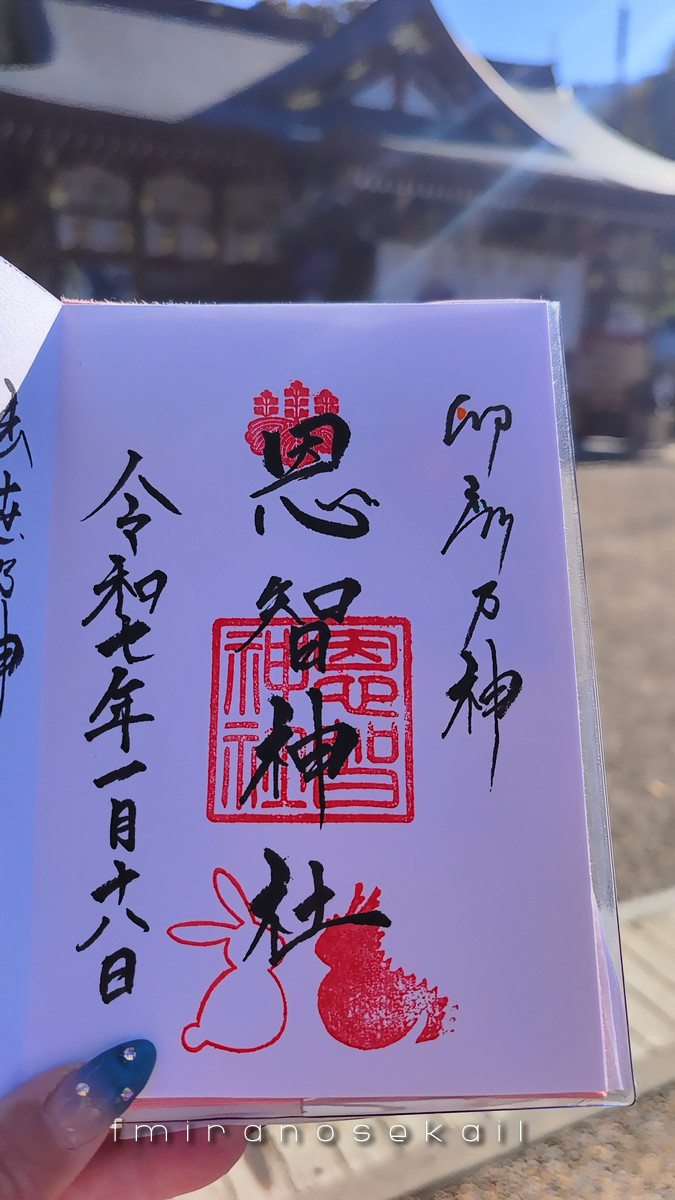 乃神
恩智神社
令和七年一月十八日
恩智
神社
乃神
fmiranosekail